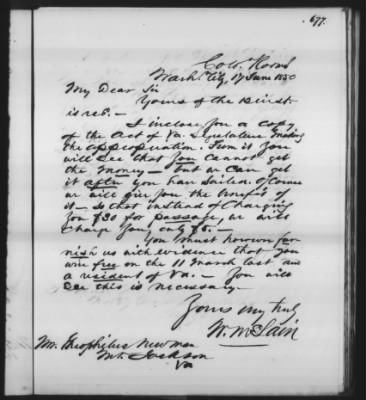 677.
Colo. Rooms
Wash. City, 17 June 1850
My Dear Sir
Yours of the inst.
is rec'd. —
I inclose you a copy
of the Act of Va. Legislature making
the appropriation. From it you
will see that you cannot get
the money — but we can get
it after you have sailed. Of course
we will give you the benefit of
it — so that instead of charging
you $30 for passage, we will
charge you only $5. —
You must however fur
nish us with evidence that you
were free on the 11 March last and
a resident of Va. — You will
see this is necessary —
Yours very truly
W. McLain
Mr. Theophilus Newman
Mt. Jackson
Va